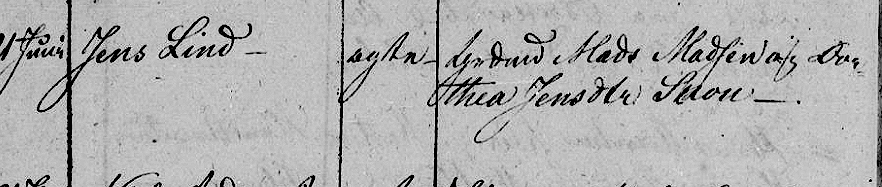 Juni Jens Lind – ægte – Grdmd Mads Madsen og Dor-
thea Jensdtr Skou – .